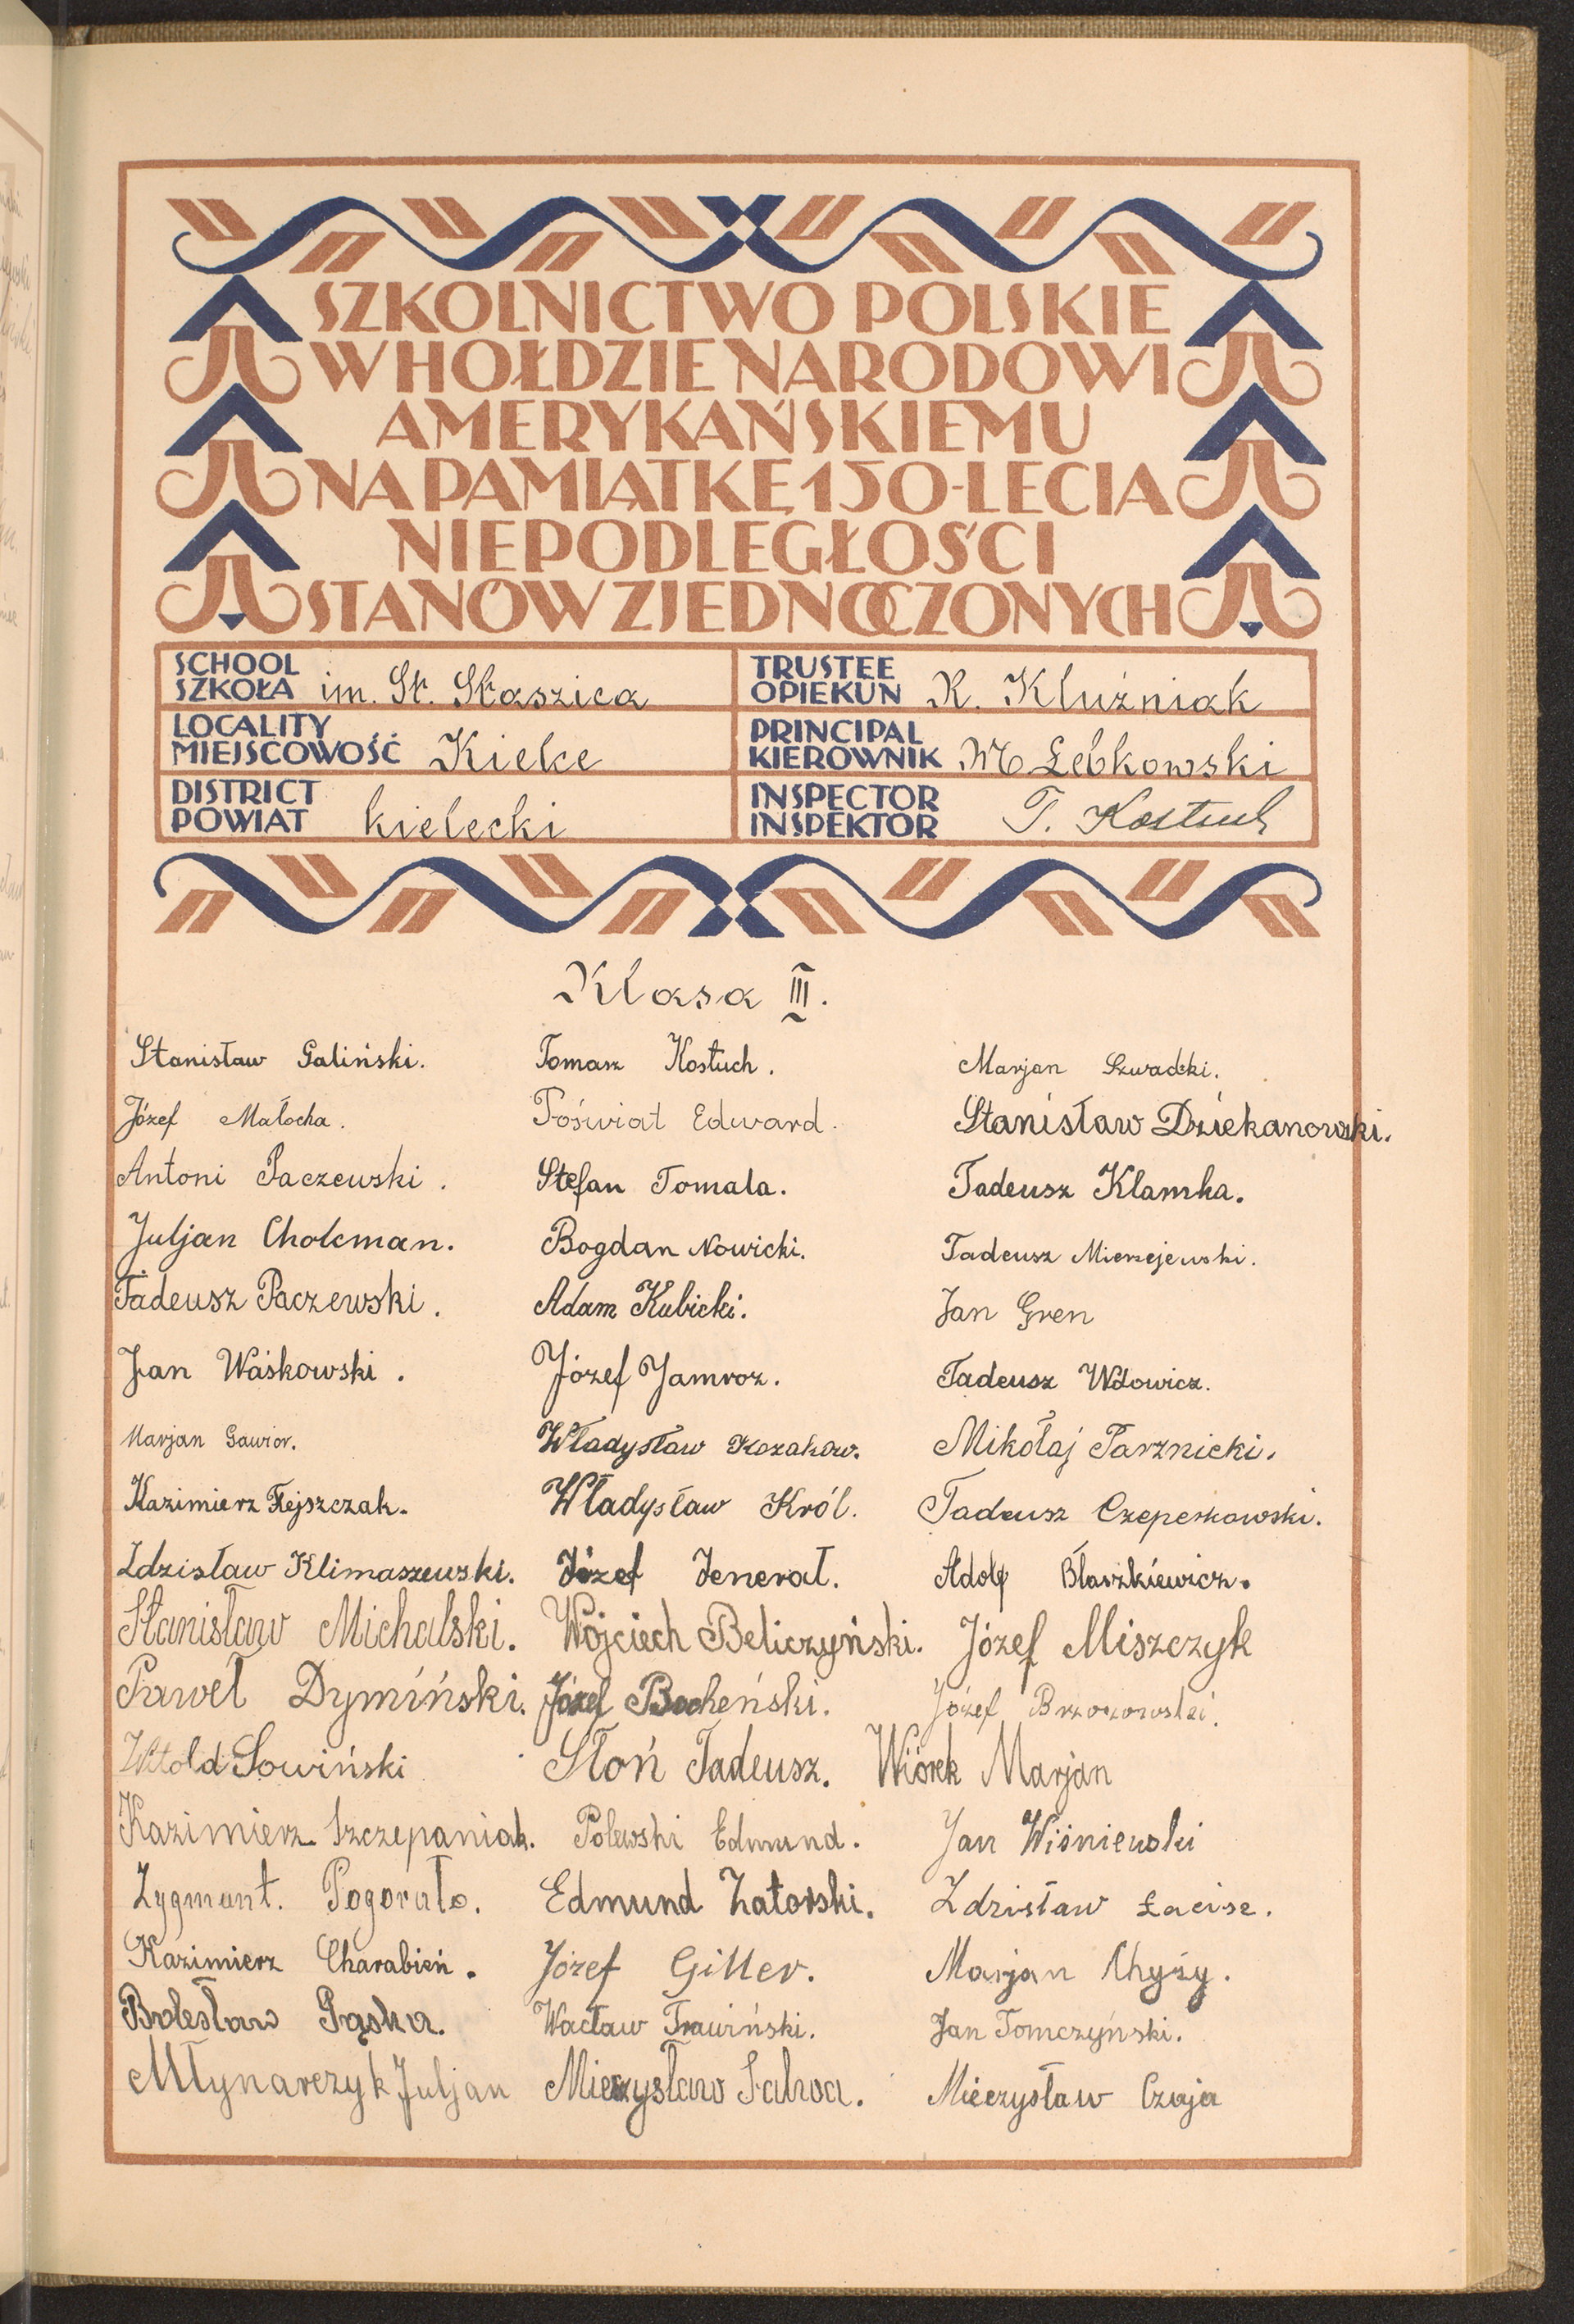 SZKOLNICTWO POLSKIE
W HOŁDZIE NARODOWI
AMERYKAŃSKIEMU
NA PAMIĄTKĘ 150-LECIA
NIEPODLEGŁOŚCI
STANÓW ZJEDNOCZONYCH
SCHOOL
SZKOŁA im. St. Staszica
TRUSTEE
OPIEKUN R. Kluźniak
LOCALITY
MIEJSCOWOŚĆ Kielce
PRINCIPAL
KIEROWNIK Łebkowski
DISTRICT
POWIAT kielecki
INSPECTOR
INSPEKTOR T. Kostuch
Klasa III.
Stanisław Galiński.
Tomasz Kostuch.
Marjan Szwadzki.
Józef Małocha.
Pośwíat Edward.
Stanisław Dziekanowski.
Antoni Paczewski.
Stefan Tomala.
Tadeusz Klamka.
Juljan Cholcman.
Bogdan Nowicki.
Tadeusz Mierzejewski.
Tadeusz Paczewski.
Adam Kubicki.
Jan Gren
Jan Waśkowski.
Józef Jamroz.
Tadeusz Wdowicz.
Marjan Gawior.
Władysław Kozakow.
Mikołaj Parznicki.
Kazimierz Flejszczak.
Władysław Król.
Tadeusz
Zdzisław Klimaszewski.
Józef Jenerał.
Adolf Błaszkiewicz.
Stanisław Michalski.
Wojciech Beliczyński.
Józef Miszczyk
Paweł Dymiński.
Józef Bocheński.
Józef Brzozowski.
Witold Sowiński
Słoń Tadeusz.
Wiórek Marjan
Kazimierz Szczepaniak.
Polewski Edmund.
Jan Wiśniewski
Zygmunt. Pogorało.
Edmund Zatorski.
Zdzisław
Kazimierz Charabień.
Józef Giller.
Marjan Chyży.
Bolesław Pąska.
Wacław Trawiński.
Jan Tomczyński.
Młynarczyk Juljan
Mieczysław
Mieczysław Czaja